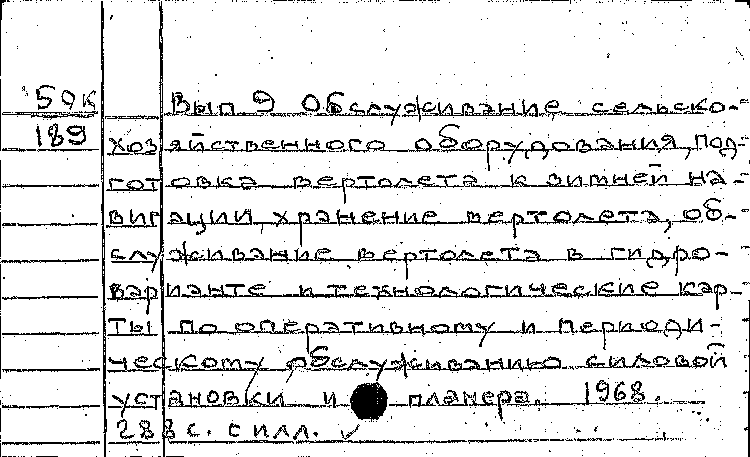 50К Вып 9 Обслуживание сельско-
189 хозяйственного оборудования, под-
готовка вертолета к зимней на-
вигации, хранение вертолета, об-
служивание вертолета в гидро-
варианте и технологические кар-
ты по оперативному и периоди-
ческому обслуживанию силовой
установки и планера. 1968.
288 с. с илл.